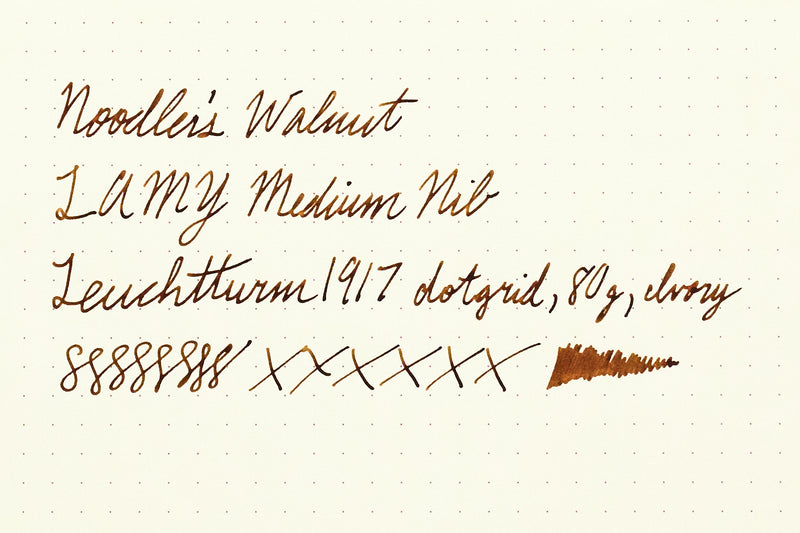 Noodler's Walnut
LAMY Medium Nib
Leuchtturm1917 dotgrid, 80g, Ivory